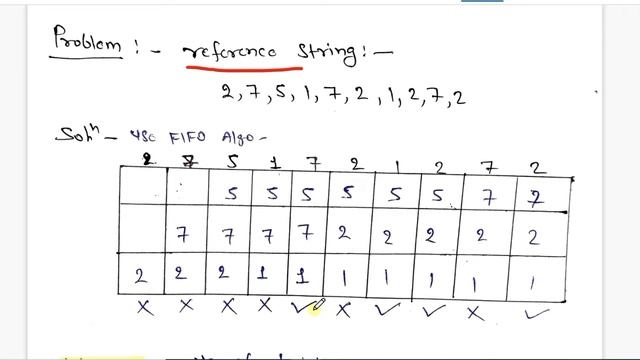 Problem :- reference string :-
2, 7, 5, 1, 7, 2, 1, 2, 7, 2
Solⁿ- use FIFO Algo-
2 7 5 1 7 2 1 2 7 2
5 5 5 5 5 5 7 7
7 7 7 7 2 2 2 2 2
2 2 2 1 1 1 1 1 1 1
X X X X ✓ X ✓ ✓ X ✓